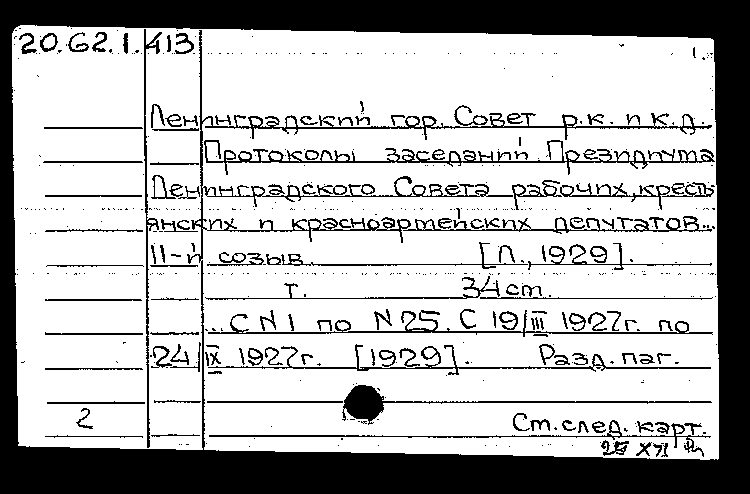 20.62.1.413
1.
Ленинградский гор. Совет р.к. и к.д.
Протоколы заседаний Президиума
Ленинградского Совета рабочих, кресть
янских и красноармейских депутатов...
II-й созыв. [Л., 1929].
т. 34 ст.
...С N1 по N25. С 19/III 1927г. по
24/IX 1927г. [1929]. Разд. паг.
2
Ст. след. карт.